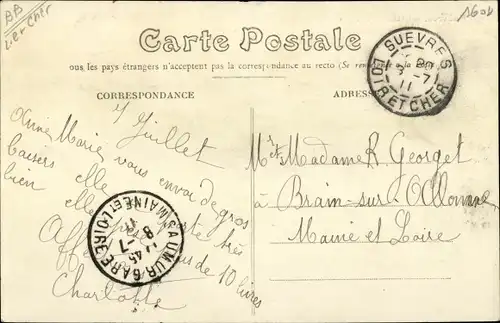 BB
Loir et Cher
Carte Postale
ous les pays étrangers n'acceptent pas la correspondance au recto (Se
CORRESPONDANCE
ADRESSE
SUEVRES
-7
11
LOIR ET CHER
7 Juillet
Anne Marie vous envoi de gros
baisers elle
bien elle très
plus de 10 livres
Charlotte
SAUMUR-GARE
45
8-7
MAINE ET LOIRE
Mr et Madame R Georget
à Brain-sur-Allonnes
Maine et Loire